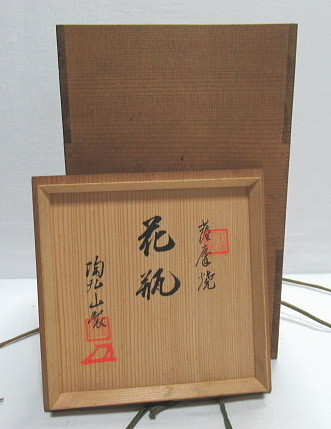 薩摩焼
花瓶
陶弘山製